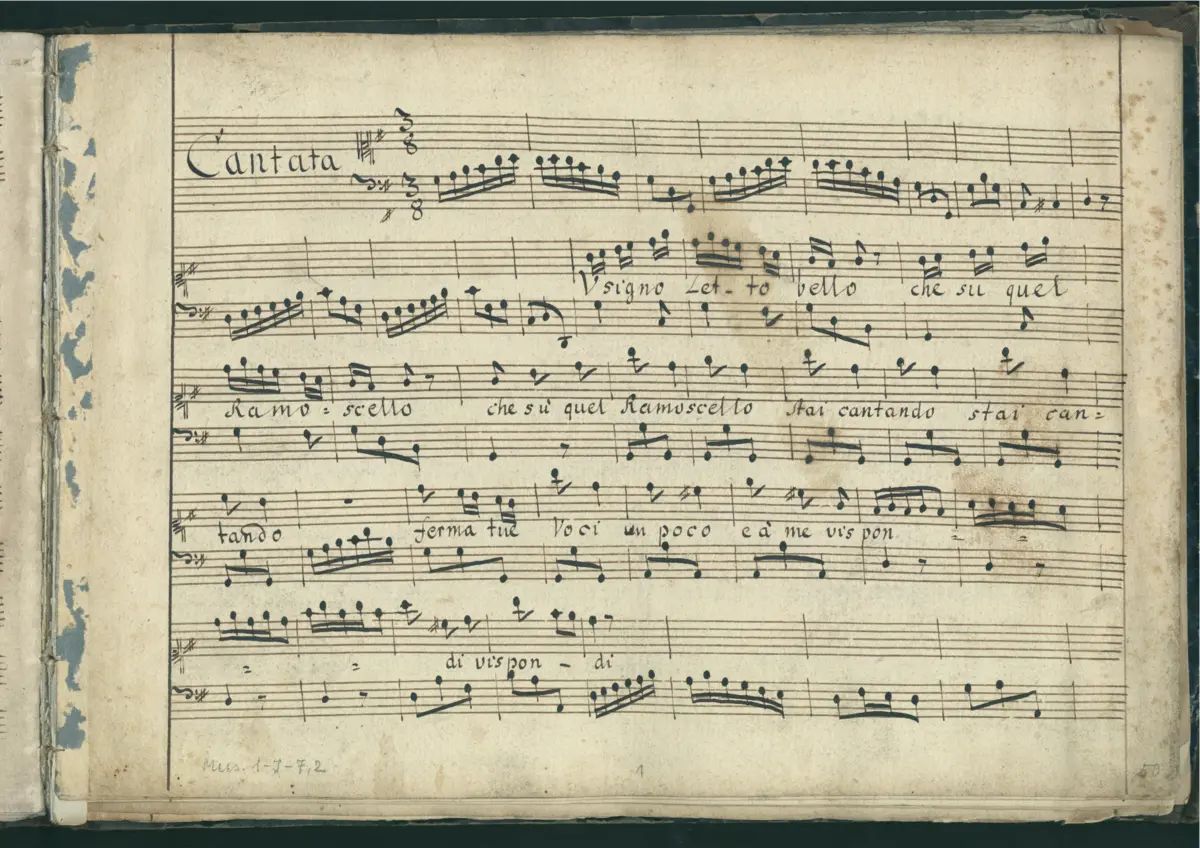 Cantata
3
8
3
8
Vsigno Let - to bello che su quel
Ramo = scello che sù quel Ramoscello stai cantando stai can=
tando ferma tue Voci un poco e à me vispon = =
= = di vispon - di
Mus. 1-J-7,2
1
50